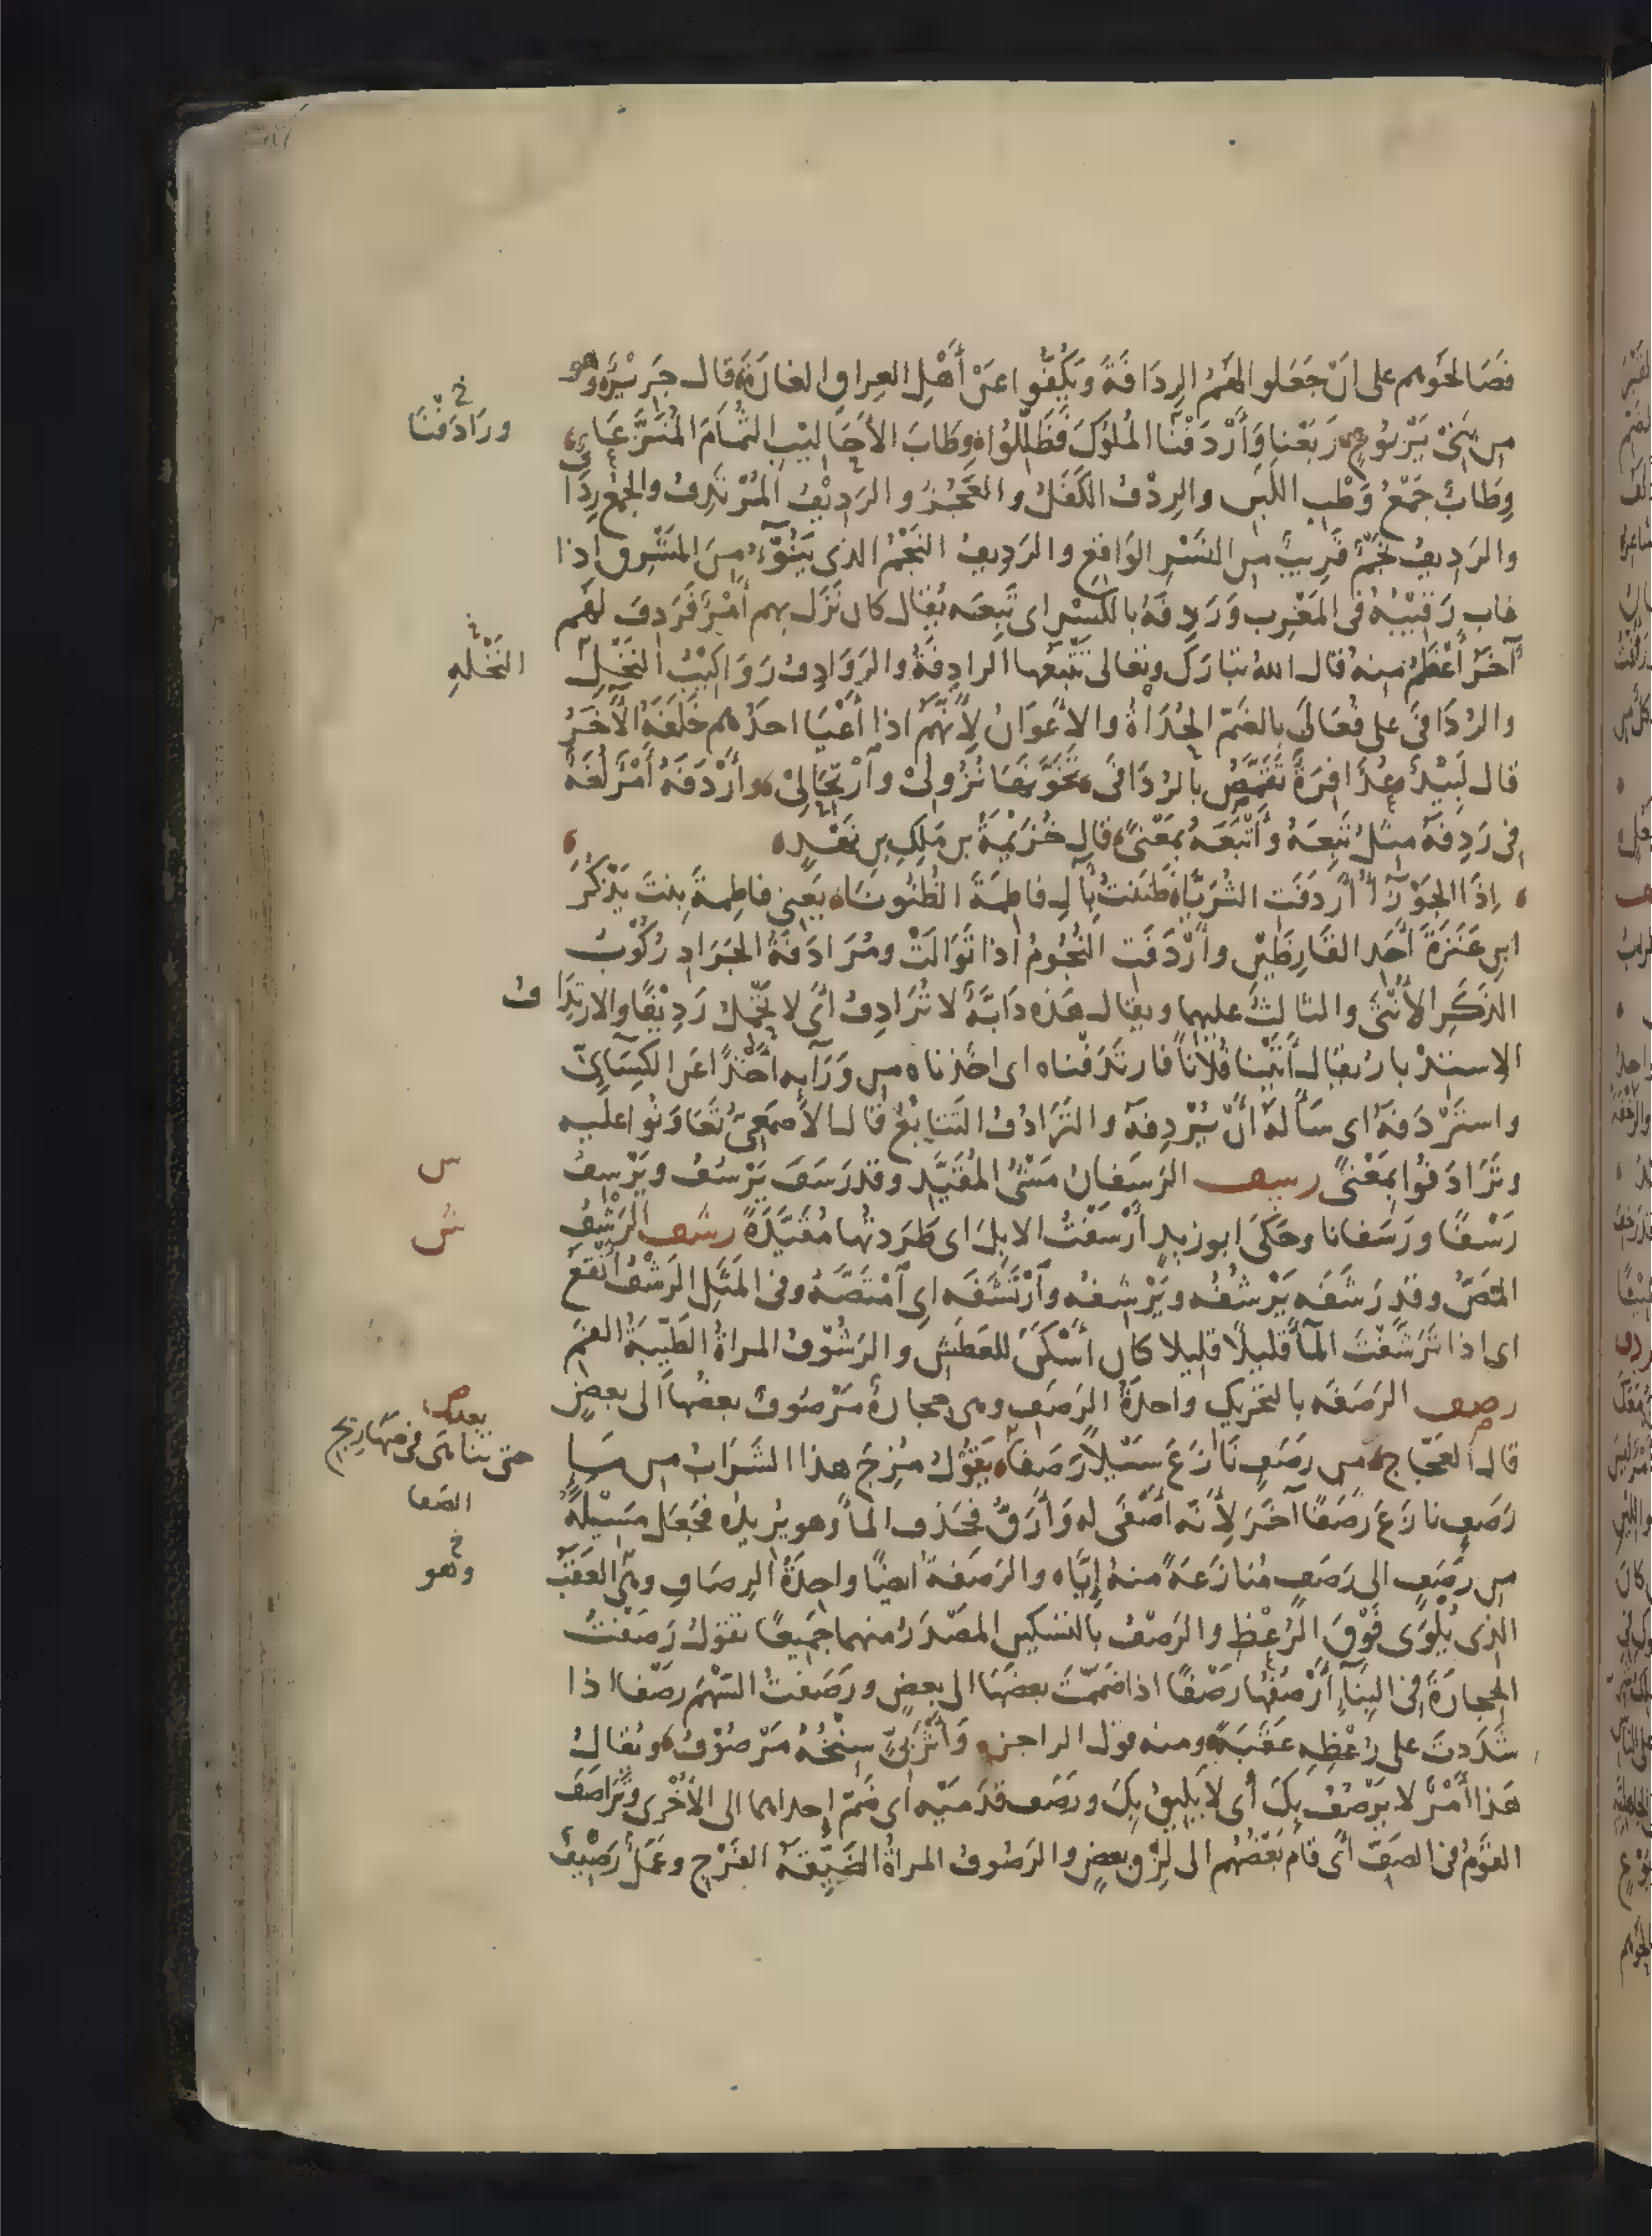 فَصَالحوهم على اَنْ جَعَلوا لهُمُ الرِدَافَةَ وَيَكُفُّوا عَنْ أَهْلِ العِراقِ الغارَةَ قال جَرِيْرٌ وهو
ورَادَفْنَا خ
من بَنِيْ يَرْبُوعٍ رَبَعْنا وَأَرْدَفْنا المُلُوكَ فَظَلِّلُوا وِطَابَ الأَحَالِيْبِ الثُمَامَ المُنَزَّعَا
وِطَابٌ جَمْعُ وَطْبِ اللَبَنِ والرِدْفُ الكَفَلُ والعَجُزُ والرَدِيْفُ المُرْتَدِفُ والجَمْعُ رِدَافٌ
والرَدِيفُ نَجْمٌ قَرِيبٌ من النَسْرِ الوَاقِعِ والرَدِيفُ النَجْمُ الذى يَنُوْءُ مِنَ المَشْرِقِ اذا
غاب رَقِيْبُهُ فى المَغْرِبِ وَرَدِفَهُ بالكَسْرِ اى تَبِعَه يُقال كان نَزَل بهم أَمْرٌ فَرَدِفَ لهم
آخَرُ أَعْظَمُ مِنهُ قال اللهُ تبارَكَ وتعالى تَتْبَعُها الرادِفَةُ والرَوَادِفُ رَوَاكِيْبُ النَخْلِ
النَخْلهِ خ
والرُدَافَى على فُعَالَى بالضَمّ الحُدَاةُ والاعْوَانُ لِأَنَّهُمْ اذا أَعْيَا احدُهم خَلَفَهُ الآخَرُ
قال لَبِيْدٌ عُذَافِرَةٌ تَقَمَّصُ بالرُدَافَى تَخَوَّنَها نُزُولِىْ وآرْتِحَالِىْ وأَرْدَفَهُ أَمْرٌ لُغَةٌ
فى رَدِفَهُ مثلُ تَبِعَهُ وأَتْبَعَهُ بِمَعْنًى قال خُزَيْمَةُ بن مَلِكِ بنِ نَهْدٍ
اِذَا الجَوْزَآءُ أَرْدَفَتِ الثُرَيَّا ظَنَنْتُ بِآلِ فاطِمَةَ الظُنُونَا يَعْنِى فاطِمةَ بِنتَ يَذْكُرَ
ابنِ عَنَزَةَ أَحَدِ القَارِظَيْنِ وأَرْدَفَتِ النُجُومُ اذا تَوَالَتْ ومُرَادَفَةُ الجَرَادِ رُكُوْبُ
الذَكَرِ الأُنْثَى والثالثُ عليهما ويقال هَذِه دَابَّةٌ لا تُرَادِفُ أَىْ لا تَحْمِلُ رَدِيْفًا والارتِدَافُ
الاِستِدْبارُ يقال أَتَيْنا فُلَاناً فارتَدَفْناه اى اخَذناه من وَرَآئِه أَخْذًا عَنِ الكِسَآئِىِّ
واستَرْدَفَهُ اى سَأَلَهُ أَنْ يُرْدِفَهُ والتَرَادُفُ التَتَابُعُ قال الأَصْمَعِىُّ تَعَاوَنُوا عليه
وتَرَادَفُوا بمَعْنًى رسف الرَسَفَانُ مَشْىُ المُقَيَّدِ وقد رَسَفَ يَرْسُفُ ويَرْسِفُ
س
رَسْفًا ورَسَفانا وحَكَى ابو زيدٍ أَرْسَفْتُ الابلَ اى طَرَدتُها مُقَيَّدَةً رشف الرَشْفُ
ش
المَصُّ وقد رَشَفَه يَرْشُفُه ويَرْشِفُه وآرْتَشَفَه اى آمْتَصَّهُ وفى المَثَلِ الرَشْفُ أَنْقَعُ
اى اذا تَرَشَّفْتَ المآءَ قليلًا قليلا كان أَسْكَنَ للعَطَشِ والرَشُوْفُ المراةُ الطَيِّبَةُ الفَمِ
رصف الرَصَفَه بالتحريك واحدَةُ الرَصَفِ وهى حجارةٌ مَرْصُوفٌ بعضُها الى بعضٍ
ص
قال العَجّاج من رَصَفٍ نَازَعَ سَيْلًا رَصَفَا يَقُولُ مُزِجَ هذا الشَرَابُ من مَآءِ
بعده حتى تناهى فى صهاريج الصفا
رَصَفٍ نازَعَ رَصَفًا آخَرَ لِأَنَّه أَصْفَى له وَأَرَقُّ فحَذف المآءَ وهو يُرِيدُه فجَعَل مَسِيْلَهُ
من رَصَفٍ الى رَصَفٍ مُنازَعَةً منهُ اِيَّاه والرَصَفةُ ايضًا واحِدَةُ الرِصَافِ وهى العَقَبُ
وهو خ
الذى يُلْوَى فَوْقَ الرُعْظِ والرَصْفُ بالتسكين المصْدَرُ منهما جَمِيعًا تقولُ رَصَفْتُ
الحِجارَةَ فى البِنَآءِ أَرْصُفُها رَصْفًا اذا ضَمَمْتَ بعضَهَا الى بعضٍ ورَصَفتُ السَهْمَ رصْفا اذا
شَدَدتَ على رُعْظِهِ عَقَبَةً ومنه قول الراجز وَأَثْرَبِىٌّ سِنْخُهُ مَرْصُوْفُ ويُقالُ
هَذا أَمْرٌ لا يَرْصُفُ بِكَ أى لا يَلِيقُ بِكَ ورَصَف قَدَمَيْه اى ضَمّ إحداهما الى الأُخْرى وتَرَاصَفَ
القَوْمُ فى الصَفِّ أى قام بَعْضُهُم الى لِزْقِ بعضٍ والرَصُوفُ المراةُ الضَيِّقَةُ الفَرْجِ وعَمَلٌ رَصِيْفٌ